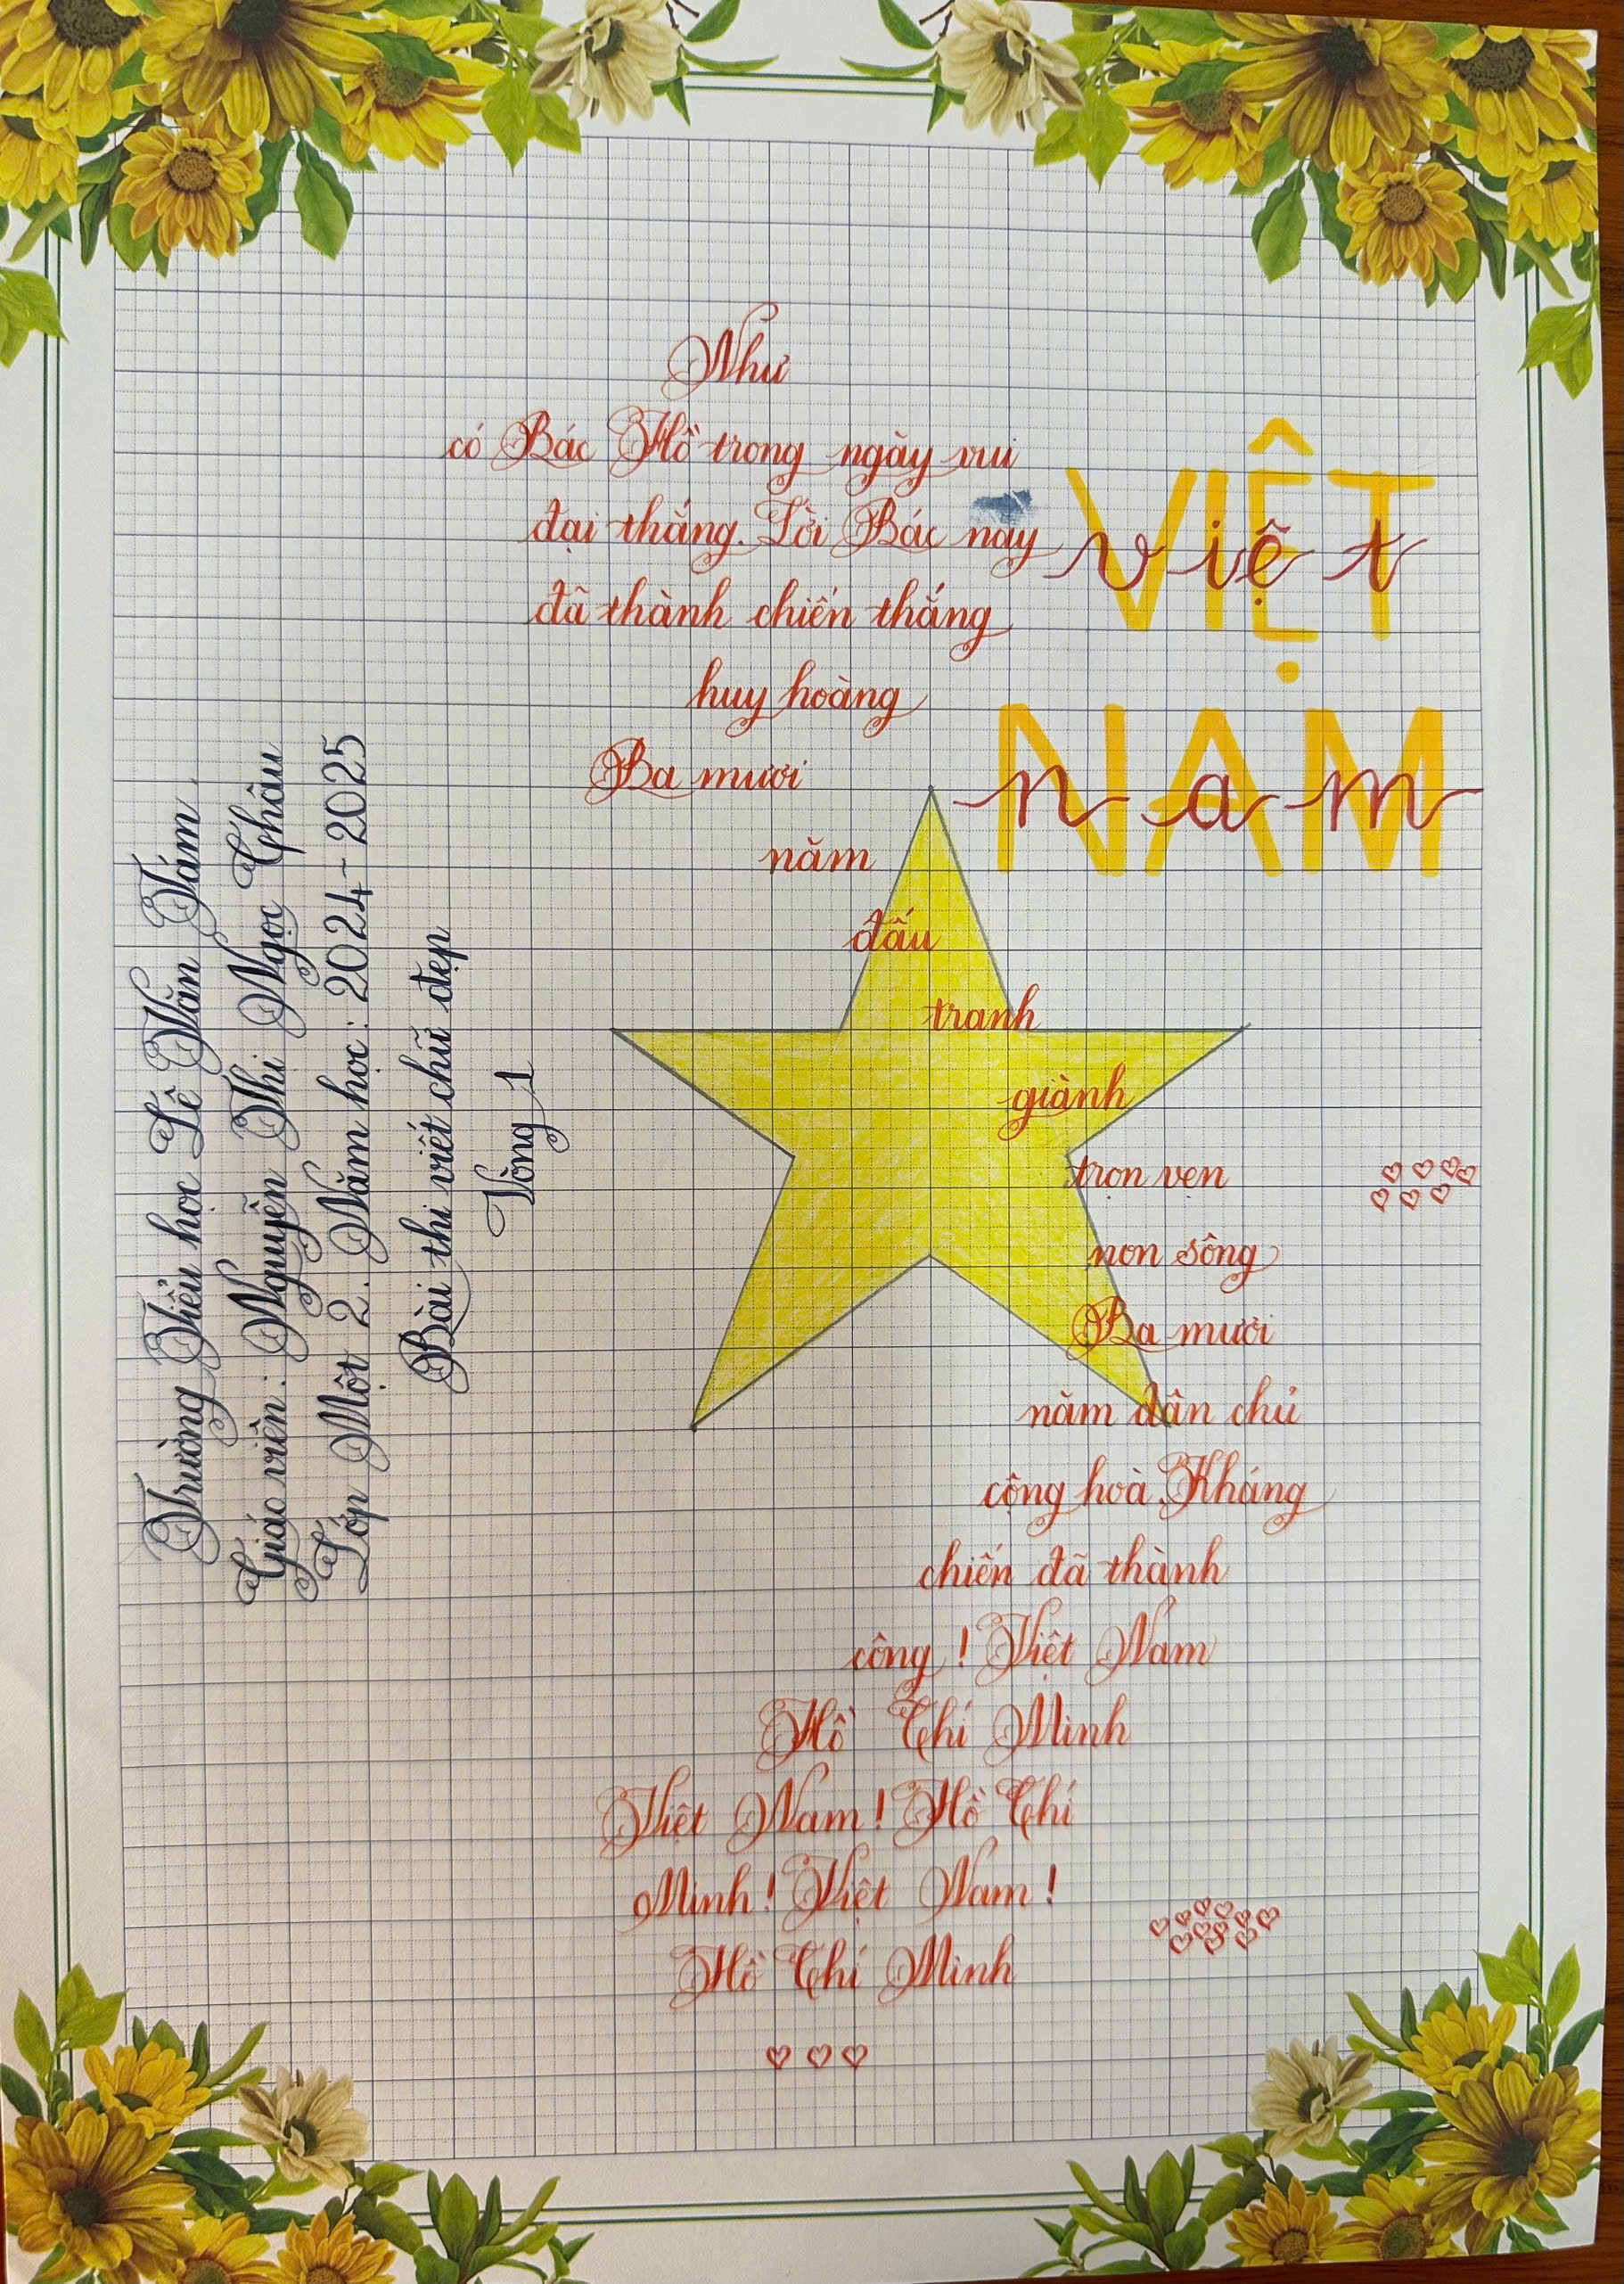 Trường Tiểu học Lê Văn Tám.
Giáo viên: Nguyễn Thị Ngọc Châu
Lớp Một 2. Năm học: 2024-2025
Bài thi viết chữ đẹp
Vòng 1
Như
có Bác Hồ trong ngày vui
đại thắng. Lời Bác nay
đã thành chiến thắng
huy hoàng
Ba mươi
năm
đấu
tranh
giành
trọn vẹn
non sông
Ba mươi
năm dân chủ
cộng hoà. Kháng
chiến đã thành
công! Việt Nam
Hồ Chí Minh
Việt Nam! Hồ Chí
Minh! Việt Nam!
Hồ Chí Minh
VIỆT
việt
NAM
nam